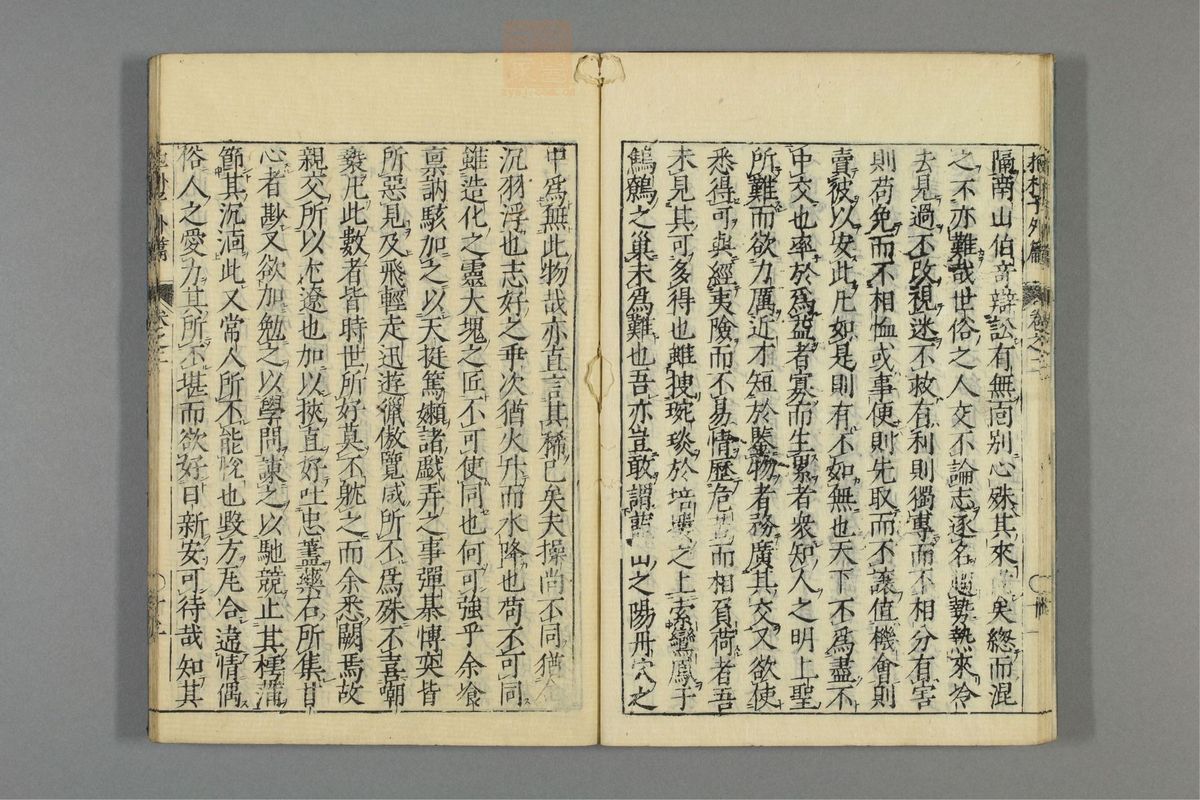 抱朴子外篇 卷之二
隔南山伯奇辯訟有無同别心殊其來矣緫而混
之不亦難哉世俗之人交不論志逐名趨勢熱來冷
去見過不改視迷不救有利則獨專而不相分有害
則苟免而不相恤或事便則先取而不讓值機會則
賣彼以安此凡如是則有不如無也天下不爲盡不
中交也率於爲益者寡而生累者衆知人之明上聖
所難而欲力厲近才短於鑒物者務廣其交又欲使
悉得可與經夷險而不易情歷危而相負荷者吾
未見其可多得也雖搜琬琰於培塿之上索鸞鳳乎
鷦鷯之巢未爲難也吾亦豈敢謂藍山之陽丹穴之
中爲無此物哉亦直言其稀已矣夫操尚不同猶金
沉羽浮也志好之乖次猶火升而水降也苟不可同
雖造化之靈大塊之匠不可使同也何可強乎余所
禀訥駭加之以天挺篤嬾諸戲弄之事彈棊博奕皆
所惡見及飛輕走迅遊獵傲覽咸所不爲殊不喜嘲
褻凡此數者皆時世所好莫不躭之而余悉闕焉故
親交所以尤遼也加以挾直好吐忠藎藥石所集甘
心者尠又欲加勉之以學問諫之以馳競止其樗蒲
節其沉湎此又常人所不能悅也毁方瓦合違情偶
俗人之愛力其所不堪而欲好日新安可得哉知其
外篇 卷之二 十一